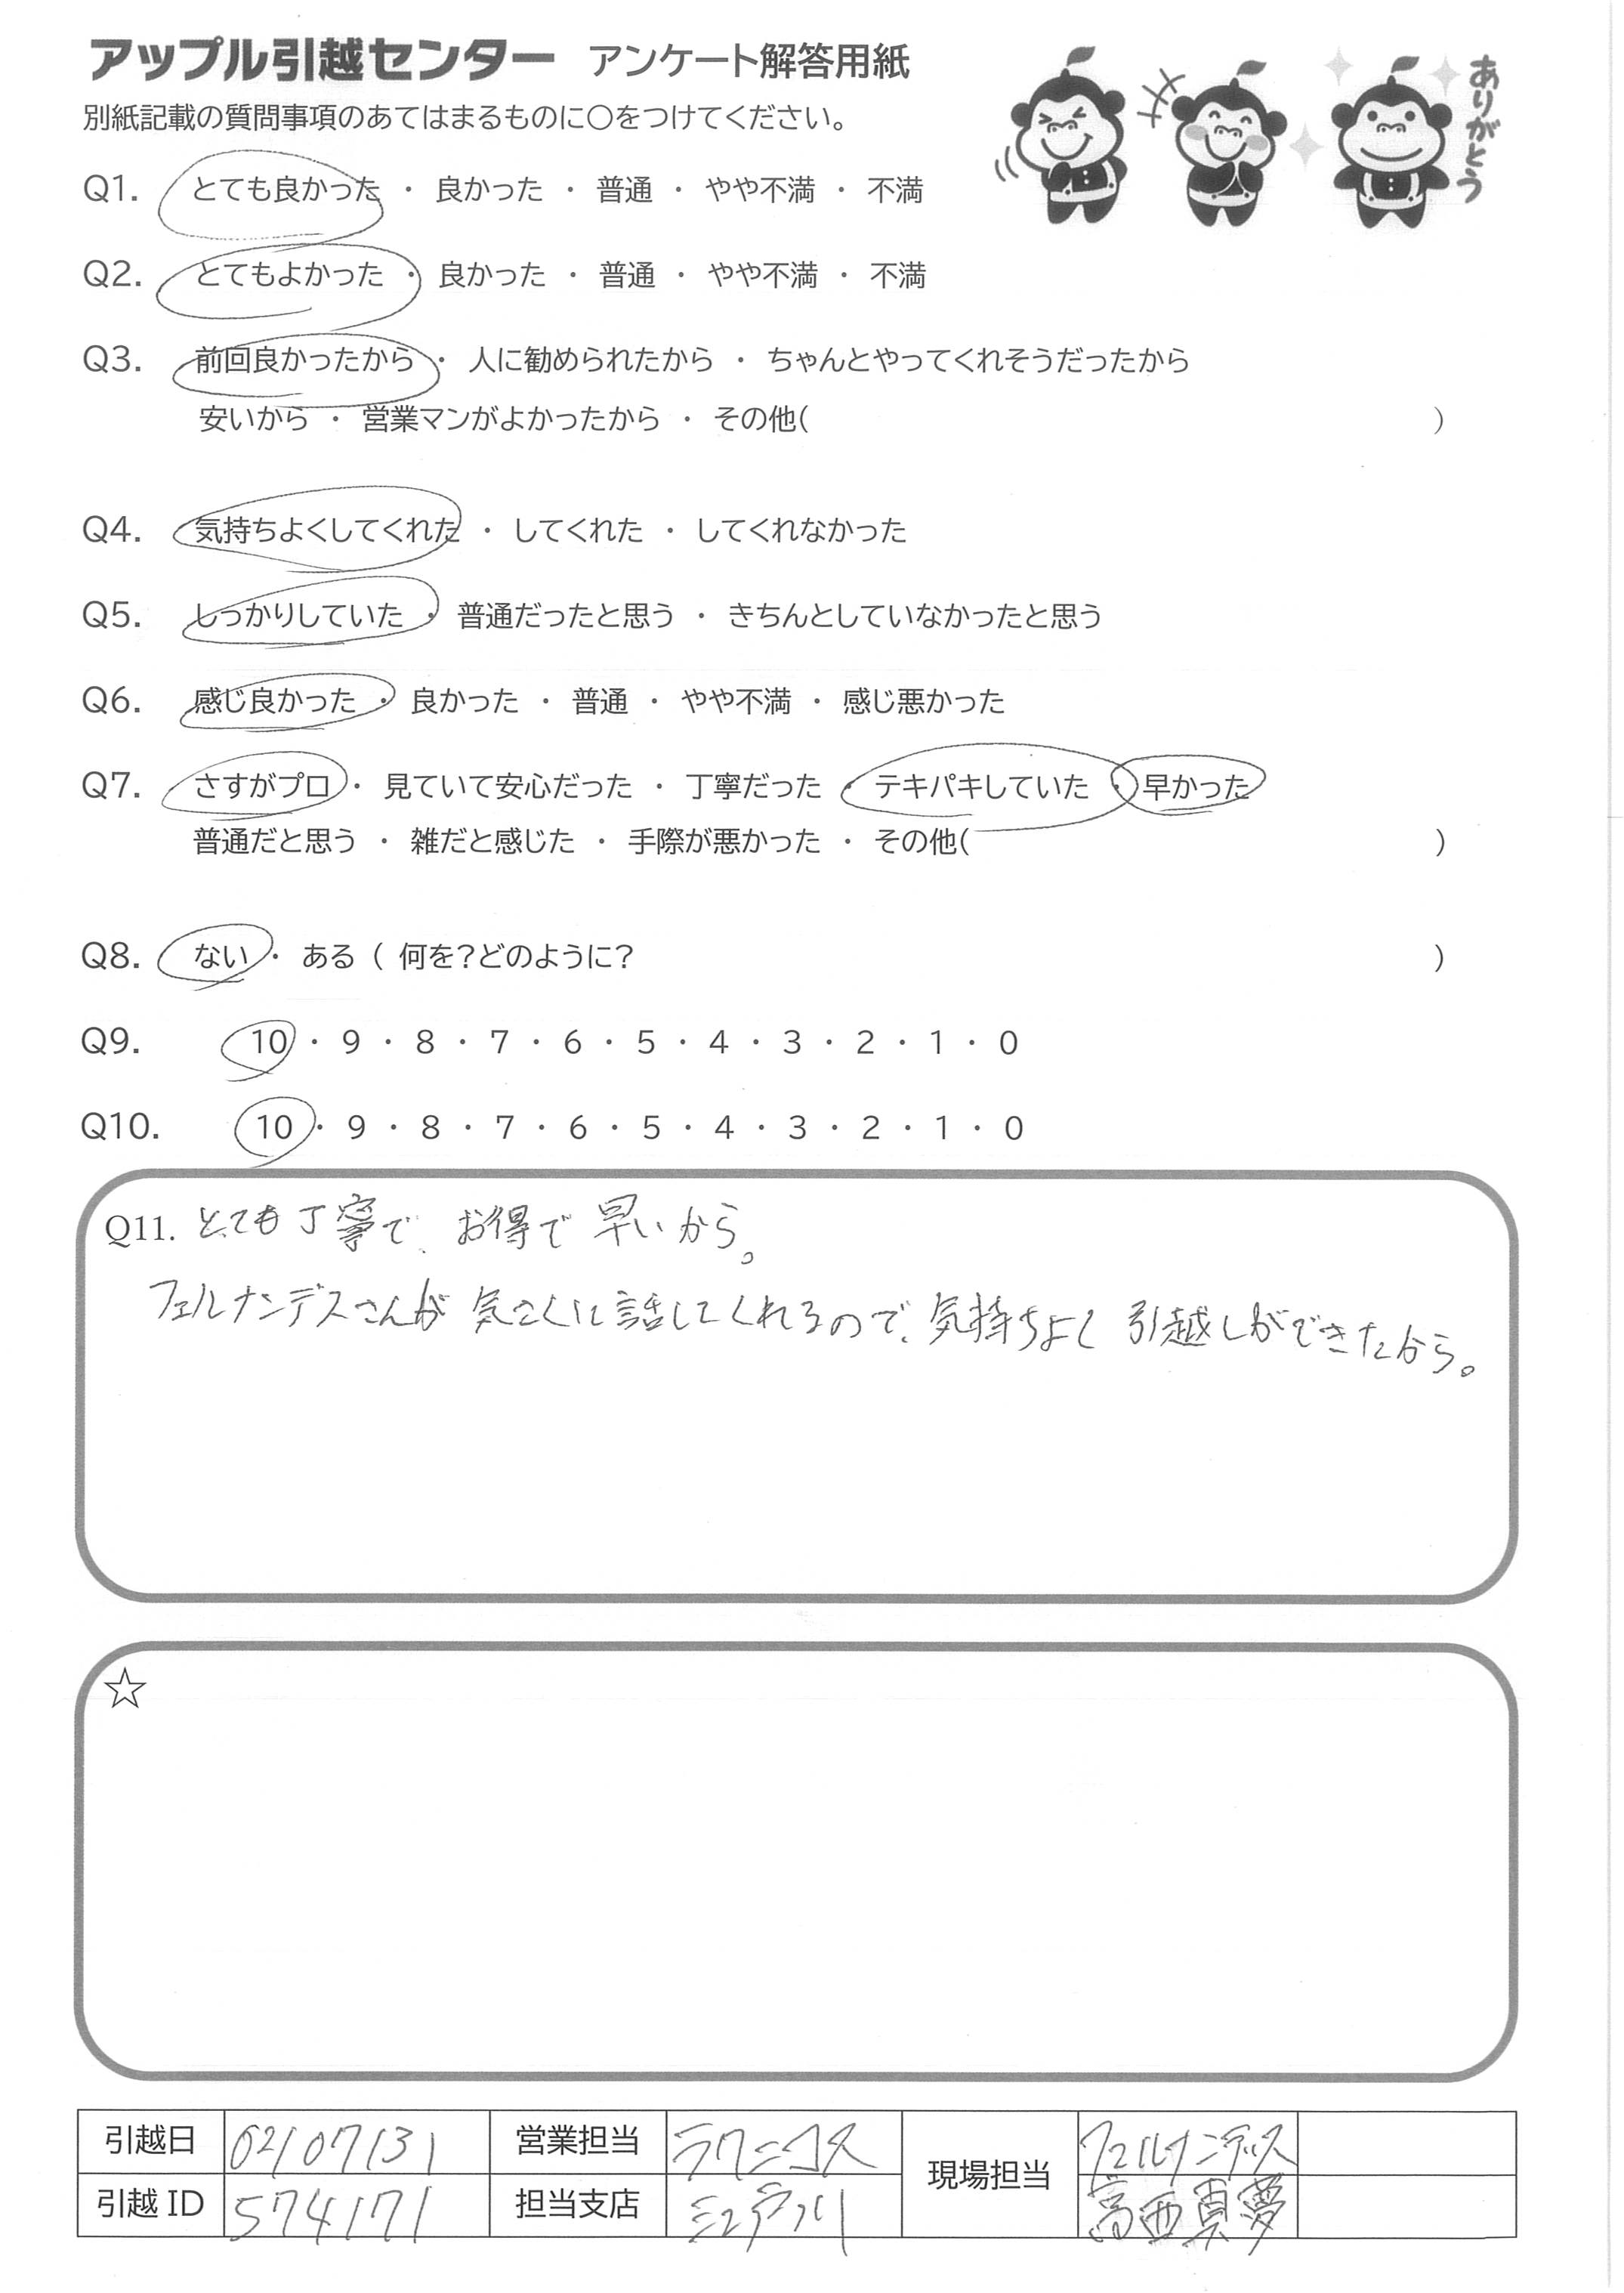 アップル引越センター アンケート解答用紙
ありがとう
別紙記載の質問事項のあてはまるものに〇をつけてください。
Q1. とても良かった ・ 良かった ・ 普通 ・ やや不満 ・ 不満
Q2. とてもよかった ・ 良かった ・ 普通 ・ やや不満 ・ 不満
Q3. 前回良かったから ・ 人に勧められたから ・ ちゃんとやってくれそうだったから
安いから ・ 営業マンがよかったから ・ その他( )
Q4. 気持ちよくしてくれた ・ してくれた ・ してくれなかった
Q5. しっかりしていた ・ 普通だったと思う ・ きちんとしていなかったと思う
Q6. 感じ良かった ・ 良かった ・ 普通 ・ やや不満 ・ 感じ悪かった
Q7. さすがプロ ・ 見ていて安心だった ・ 丁寧だった ・ テキパキしていた ・ 早かった
普通だと思う ・ 雑だと感じた ・ 手際が悪かった ・ その他( )
Q8. ない ・ ある ( 何を?どのように? )
Q9. 10 ・ 9 ・ 8 ・ 7 ・ 6 ・ 5 ・ 4 ・ 3 ・ 2 ・ 1 ・ 0
Q10. 10 ・ 9 ・ 8 ・ 7 ・ 6 ・ 5 ・ 4 ・ 3 ・ 2 ・ 1 ・ 0
Q11. とても丁寧で、お得で早いから。
フェルナンデスさんが気さくに話してくれるので、気持ちよく引越しができたから。
☆
引越日 02/07/31 営業担当 現場担当 フェルナンデス
引越ID 574171 担当支店 江戸川 高西真夢